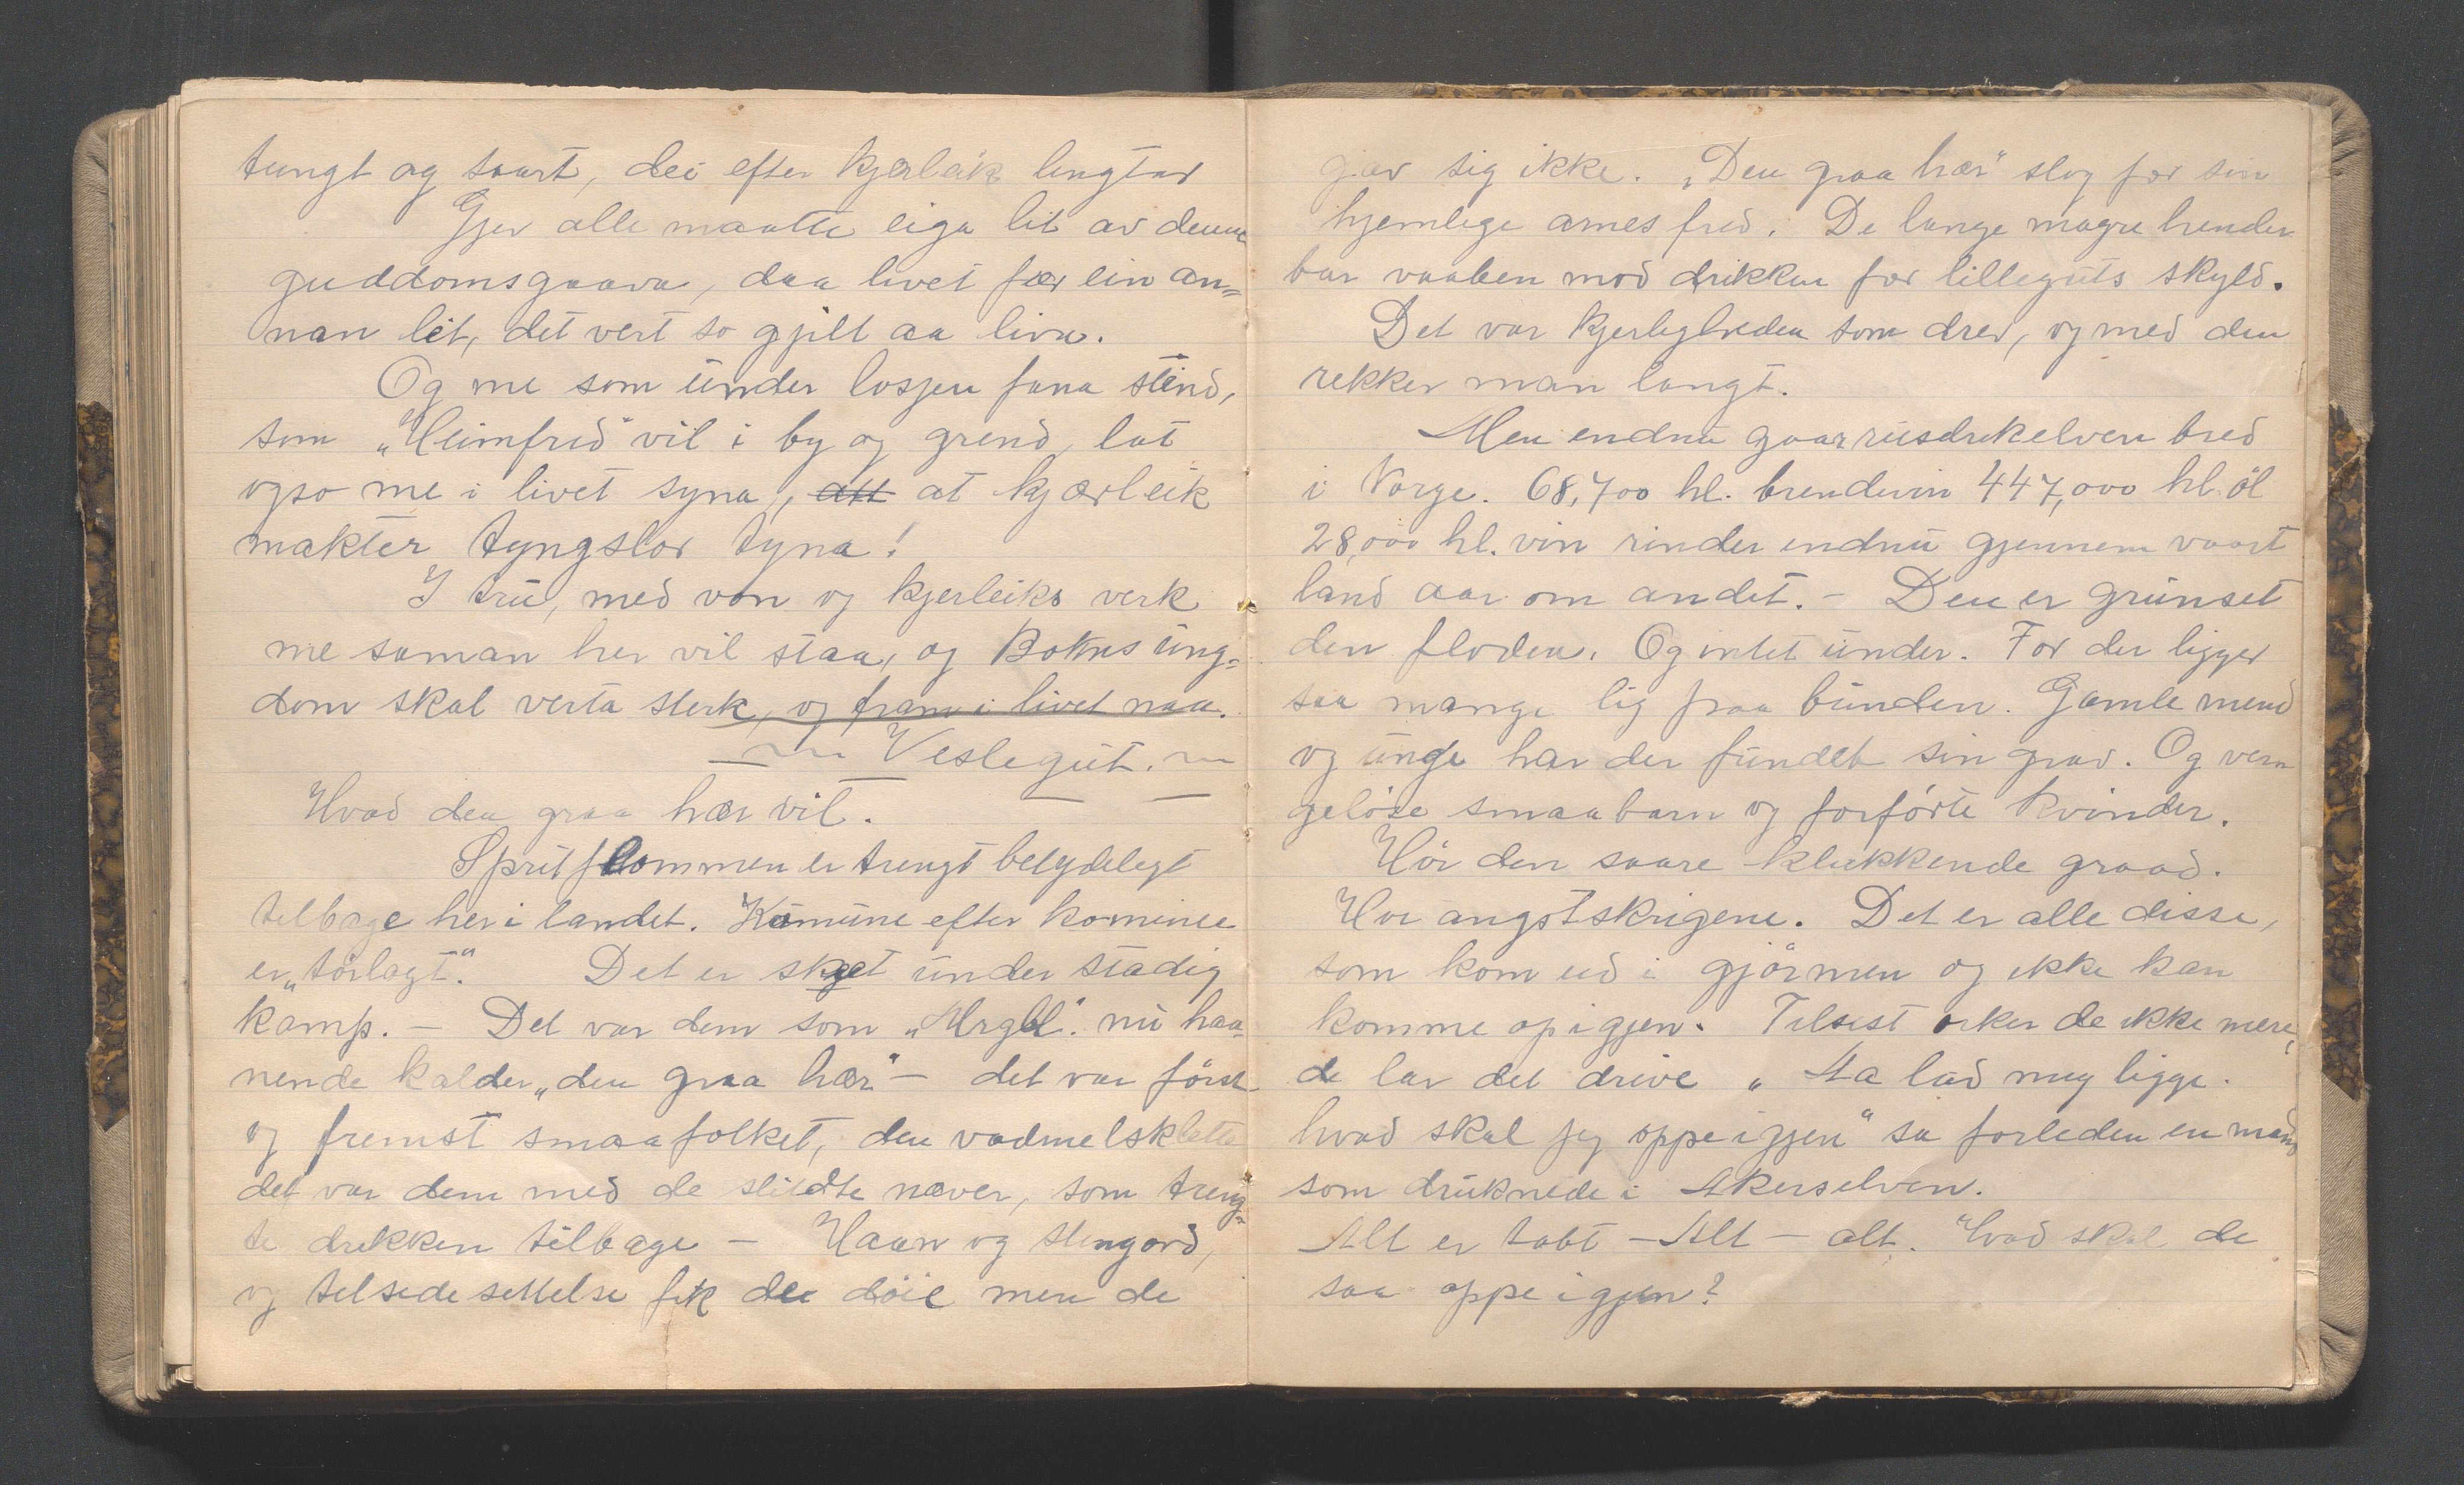 tungt og saart, dei efter kjerleik lengtar
Gjev alle maatte eiga lit av denne
guddomsgaava, daa livet fær ein an=
nan lit, det vert so gjilt aa liva.
Og me som under losjen fana stend,
som „Heimfred" vil i by og grend, lat
ogso me i livet syna, att at kjærleik
makter tyngslor tyna!
I tru, med von og kjerleiks verk
me saman her vil staa, og Bokns ung=
dom skal verta sterk, og fram i livet naa.
Veslegut.
Hvad den graa hær vil.
Spritflommen er trengt betydeligt
tilbage her i landet. Komune efter komune
er „törlagt". Det er skeet under stadig
kamp. – Det var dem som „Mrgbl". nu haa=
nende kalder „den graa hær" – det var först
og fremst smaafolket, den vadmelsklette
det var dem med de slidte næver, som treng=
te drikken tilbage – Haan og stengord,
og tilsidesettelse fik de döie men de
gav sig ikke. „Den graa hær" slog for sin
hjemlige arnes fred. De lange magre hender
bar vaaben mod drikken for lilleguts skyld.
Det var kjerligheden som drev, og med den
rekker man langt.
Men endnu gaar rusdrikelven bred
i Norge. 68,700 hl. brendevin 447,000 hl. öl
28,000 hl. vin rinder endnu gjennem vaart
land aar om andet. – Den er grumset
den floden. Og intet under. For der ligger
saa mange lig paa bunden. Gamle mend
og unge har der fundet sin grav. Og vern
gelöse smaabarn og forförte kvinder.
Hör den saare klukkende graad.
Hör angstskrigene. Det er alle disse,
som kom ud i gjörmen og ikke kan
komme op igjen. Tilsist orker de ikke mere,
de lar det drive „Aa lad mig ligge.
hvad skal jeg oppe igjen" sa forleden en mand
som druknede i Akerselven.
Alt er tabt – Alt – alt. Hvad skal de
saa oppe igjen?